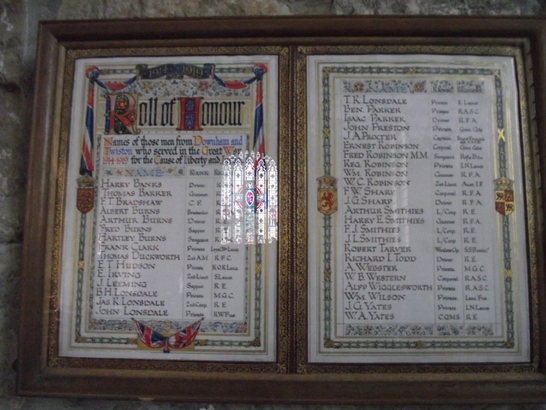 Roll of Honour
Names of those men from Downham and
Twiston who served in the Great War
1914-1919 for the Cause of Liberty and
NAME RANK
HARRY BANKS Driver
THOMAS BARKER Gunner
F.T. BRADSHAW C.F.
ALBERT BURNS
ARTHUR BURNS Driver
FRED BURNS R.E.
HARTLEY BURNS
FRANK CLARK Private
THOMAS DUCKWORTH 2nd A.M. R.F.C.
E.T. HUDSON Private
E. IRVING
J. LEEMING R.E.
B.H. LONSDALE Private M.G.C.
JAS K. LONSDALE R.E.
JOHN LONSDALE Private
NAME
T.R. LONSDALE Private
BEN PARKER Private R.A.S.C.
ISAAC PARKER Driver R.F.A.
JOHN PRESTON Private
J.A. PROCTER Captain
ERNEST ROBINSON
FRED ROBINSON MM Sergeant
REG. ROBINSON Private L.N. Lancs
WM. ROBINSON Gunner R.F.A.
W.C. ROBINSON Driver R.F.A.
F.W. SHARP Corporal R.F.A.
J.G. SHARP Driver R.F.A.
ARTHUR SMITHIES L/Corp R.E.
HARRY E. SMITHIES Corporal R.F.A.
F.J. SMITHIES L/Corp R.E.
J.L. SMITHIES L/Corp R.E.
ROBERT TARVER
RICHARD I. TODD Driver R.E.
A. WEBSTER Private M.G.C.
W.B. WESTERN Corporal R.A.S.C.
ALF? WIGGLESWORTH Private R.A.S.C.
WM. WILSON Private
J.G. YATES Private L.N. Lancs
W.A. YATES C.Q.M.S. R.E.